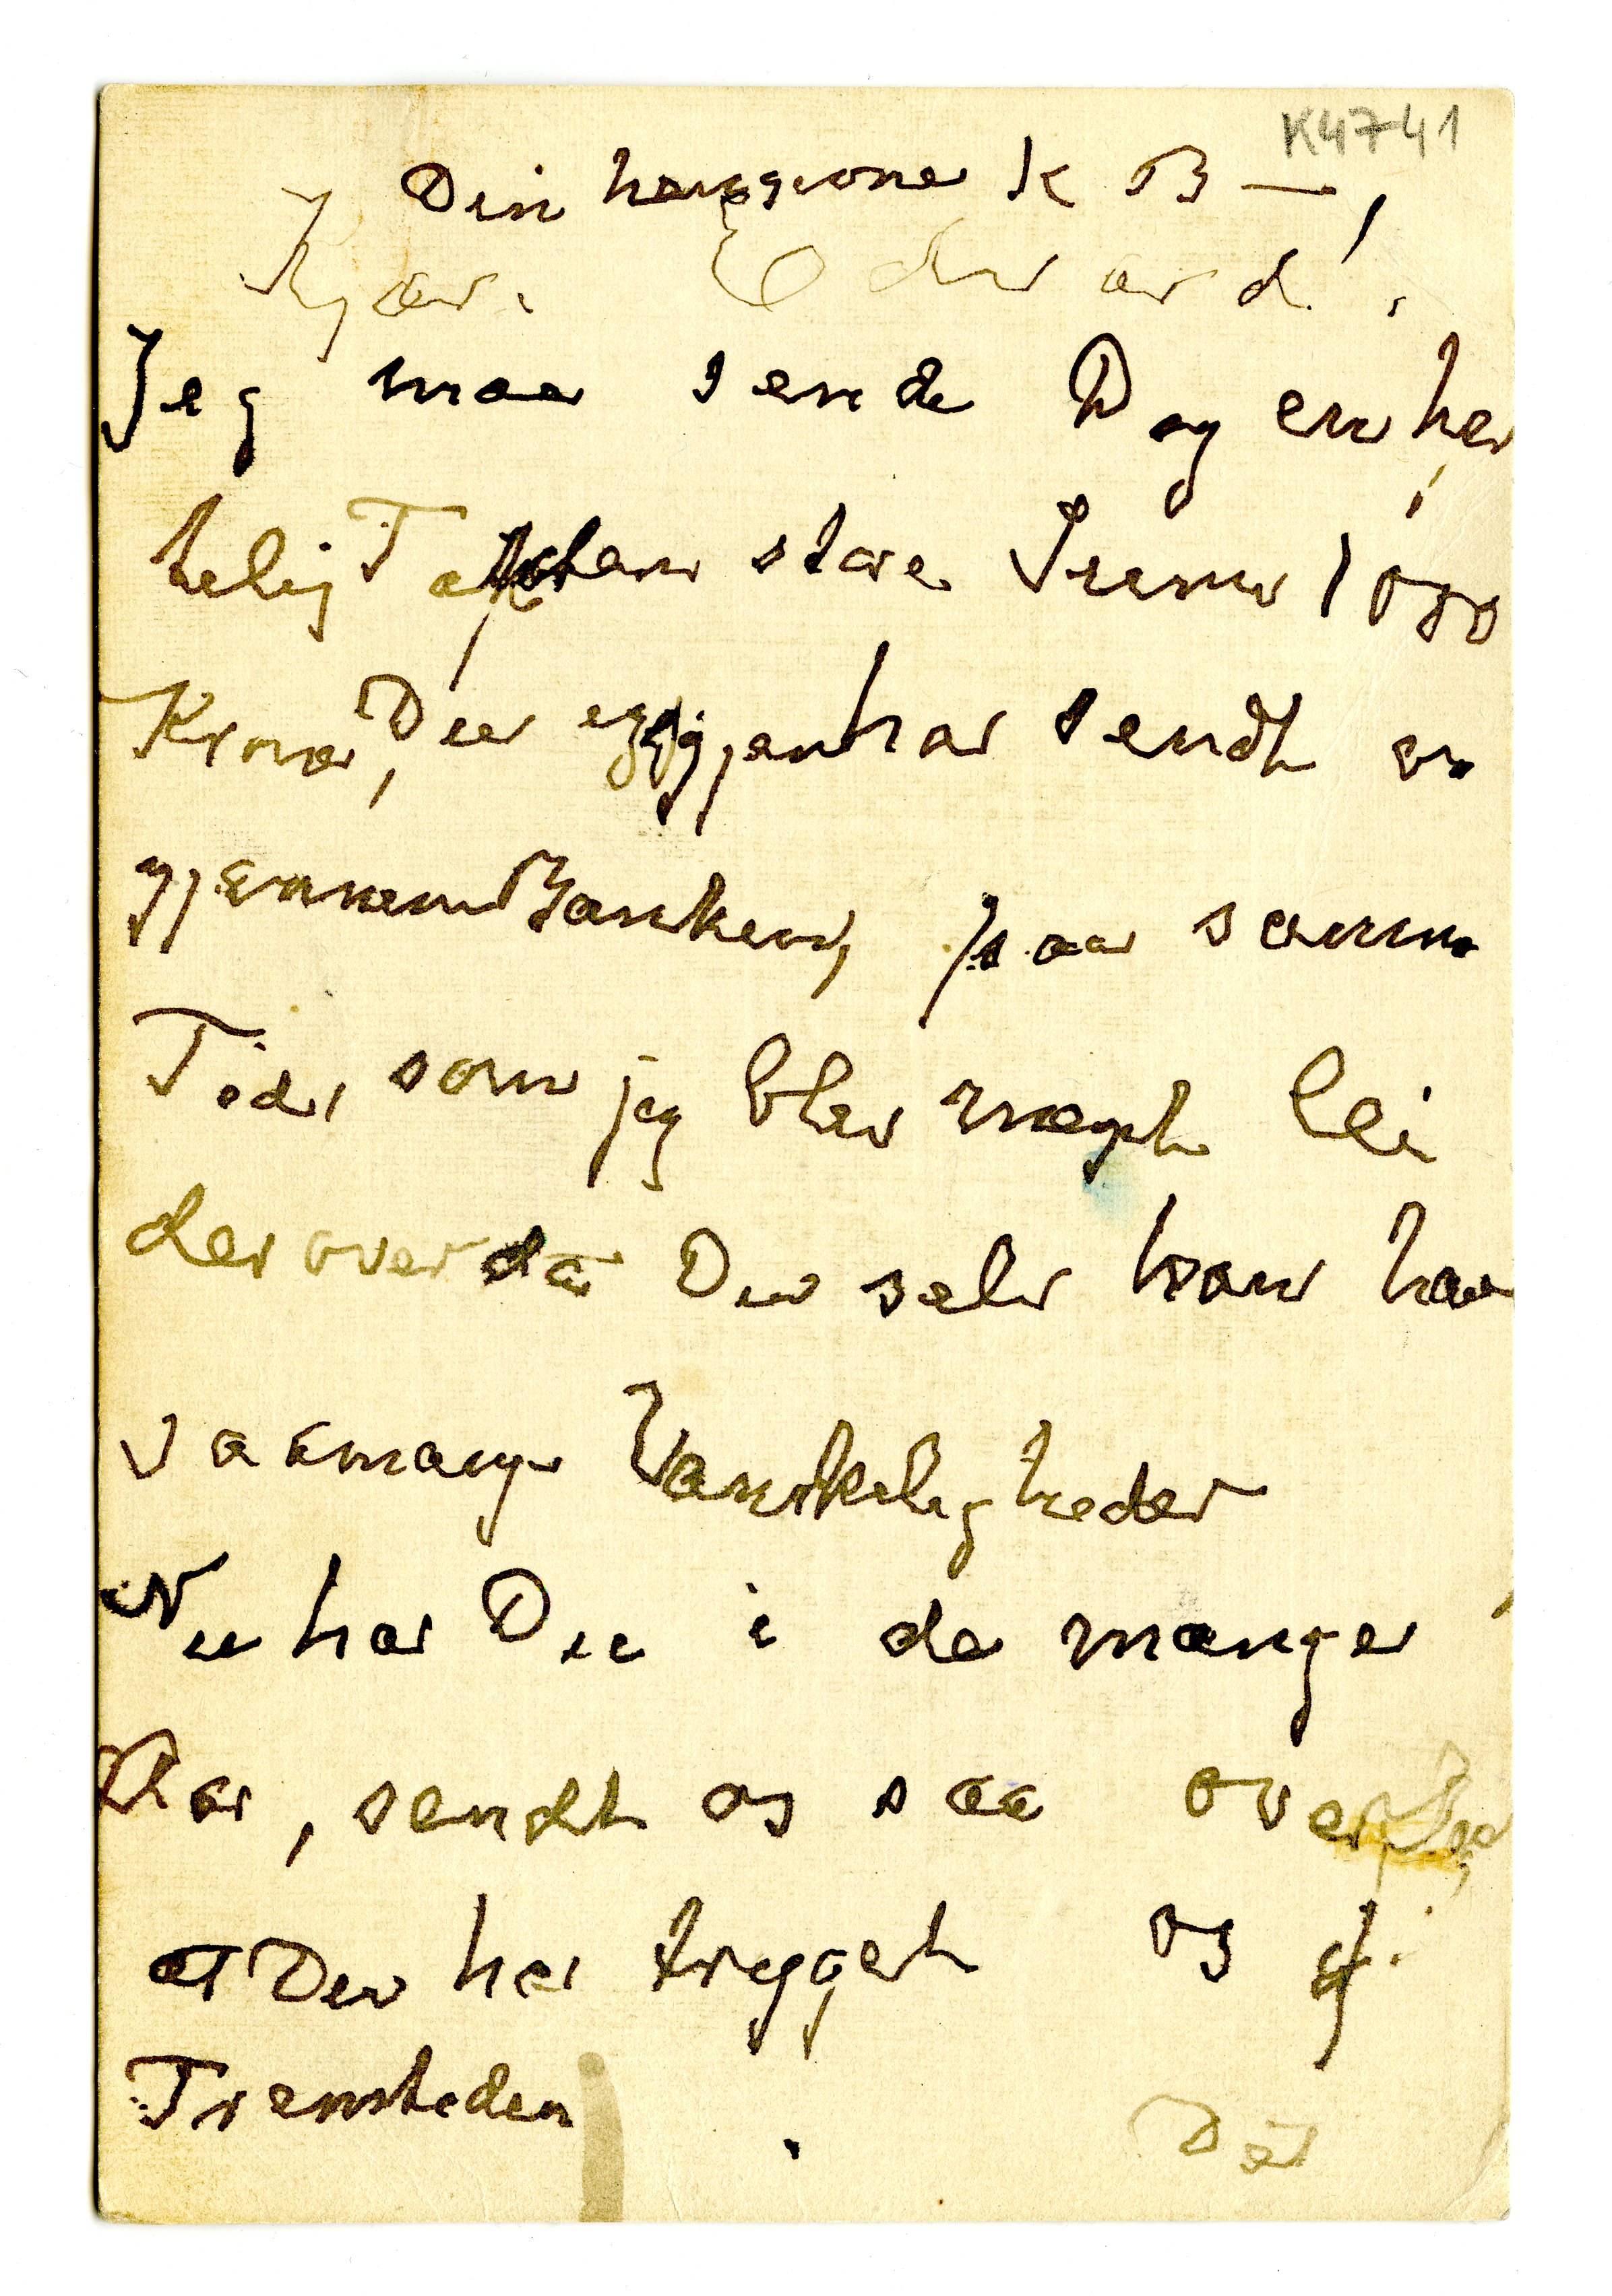 K4741
Din hengivne K B —,
Kjære Edvard!
Jeg maa sende Dig en her
telig Tak for den store Sum 1000
Kroner, Du igjen har sendt os
gjennem Banken, paa samme
Tid, som jeg blev meget lei
derover da Du selv kan ha
saa mange Vanskeligheder
Nu har Du i de mange
Aar, sendt os saa
at Du har trygget os
Fremtiden
Det